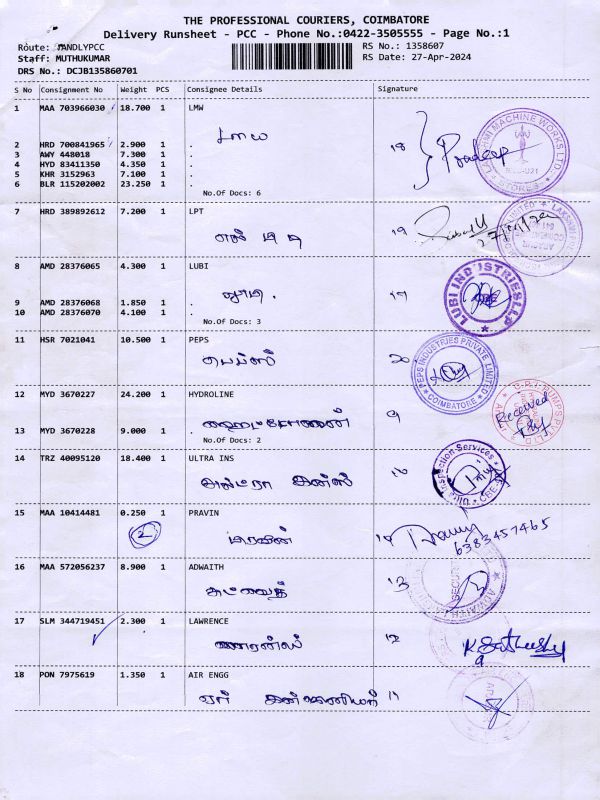 THE PROFESSIONAL COURIERS, COIMBATORE
Delivery Runsheet - PCC - Phone No.:0422-3505555 - Page No.:1
Route: TANDLYPCC
RS No.: 1358607
Staff: MUTHUKUMAR
RS Date: 27-Apr-2024
DRS No.: DCJB135860701
S No Consignment No Weight PCS Consignee Details Signature
1 MAA 703966030 18.700 1 LMW
Lmw
2 HRD 700841965 2.900 1 . 18 Pradeep
3 AWY 448018 7.300 1 .
4 HYD 83411350 4.350 1 .
5 KHR 3152963 7.100 1 .
6 BLR 115202002 23.250 1 .
No.Of Docs: 6
LAKSHMI MACHINE WORKS LTD. STORES
7 HRD 389892612 7.200 1 LPT
எல் பி டி 19
8 AMD 28376065 4.300 1 LUBI
லுபி. 17
9 AMD 28376068 1.850 1 .
10 AMD 28376070 4.100 1 .
No.Of Docs: 3
LUBI INDUSTRIES LLP
11 HSR 7021041 10.500 1 PEPS
பெப்ஸ் 20
PEPS INDUSTRIES PRIVATE LIMITED COIMBATORE
12 MYD 3670227 24.200 1 HYDROLINE
9 Received
13 MYD 3670228 9.000 1 .
No.Of Docs: 2
14 TRZ 40095120 18.400 1 ULTRA INS
அல்ட்ரா இன்ஸ் 10
Inspection Services
15 MAA 10414481 0.250 1 PRAVIN
2 பிரவின் 14
6383457465
16 MAA 572056237 8.900 1 ADWAITH
அட்வைத் 13
17 SLM 344719451 2.300 1 LAWRENCE
லாரன்ஸ் 12
18 PON 7975619 1.350 1 AIR ENGG
ஏர் இன்ஜினியர் 11